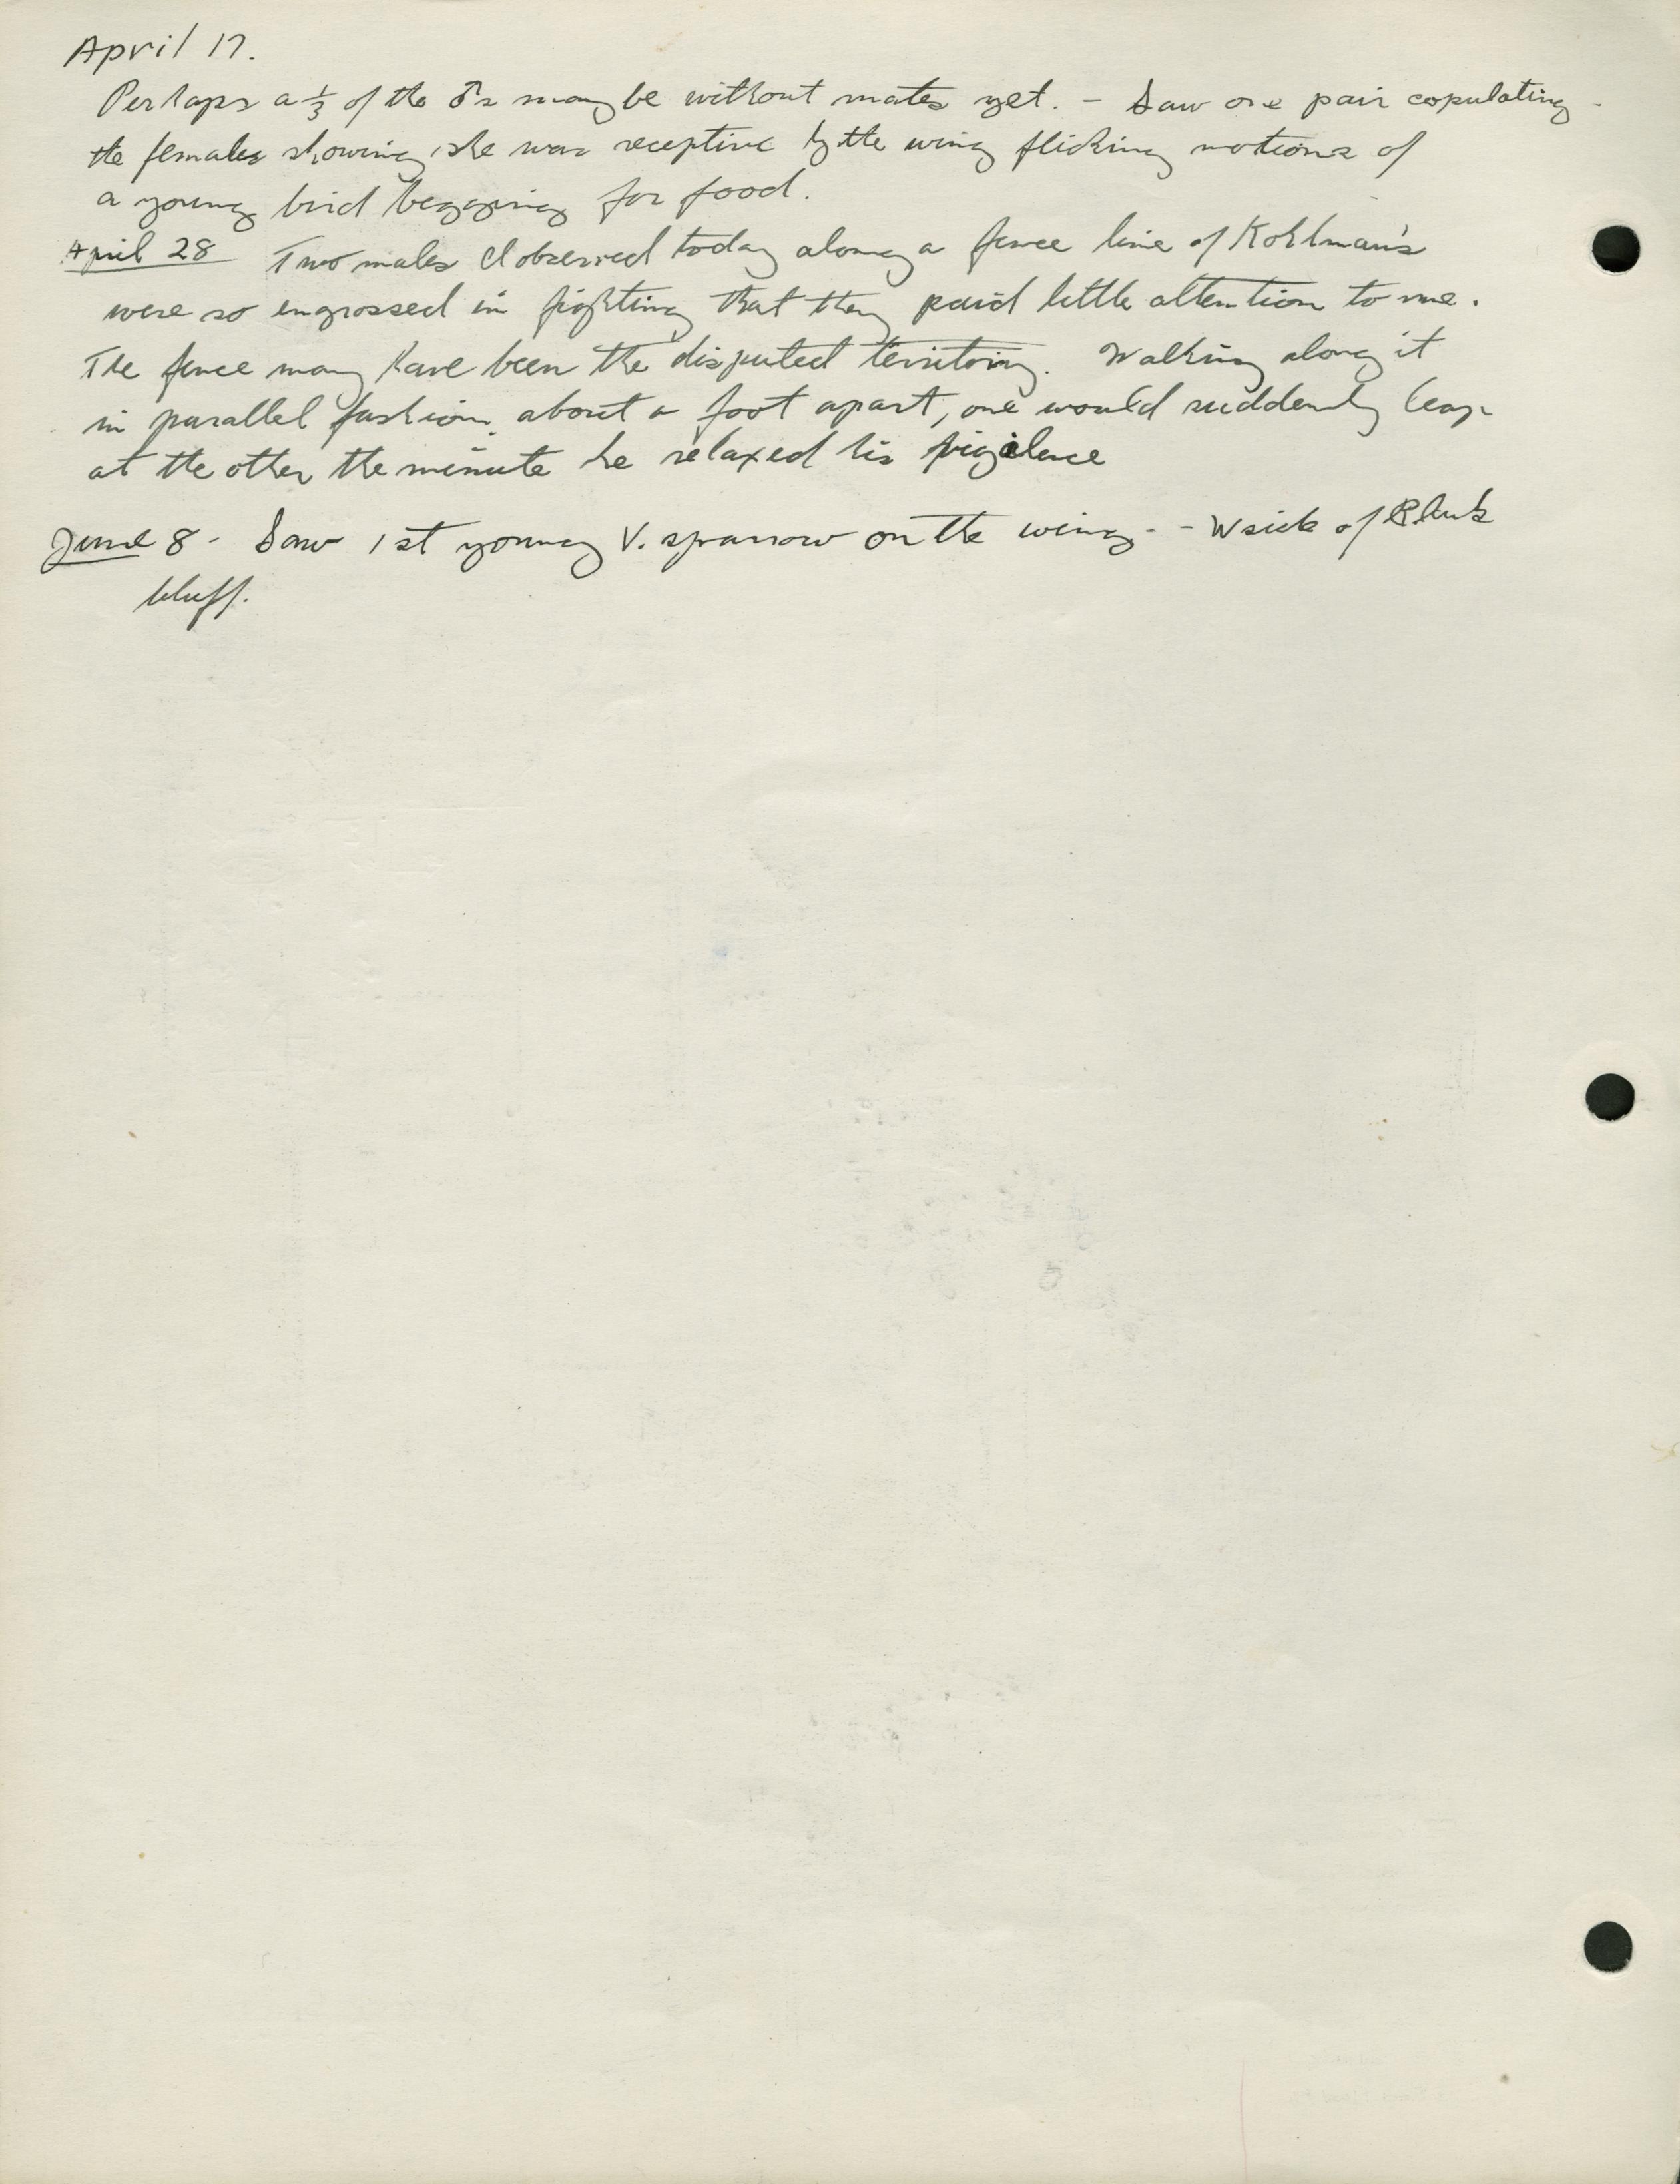 April 17.
Perhaps a 1/3 of the ♂s may be without mates yet. - Saw one pair copulating -
the females showing she was receptive by the wing flicking motions of
a young bird begging for food.
April 28 Two males I observed today along a fence line of Kohlman's
were so engrossed in fighting that they paid little attention to me.
The fence may have been the disputed territory. Walking along it
in parallel fashion about a foot apart, one would suddenly leap
at the other the minute he relaxed his vigilence
June 8 - Saw 1st young V. sparrow on the wing - - W side of
bluff.